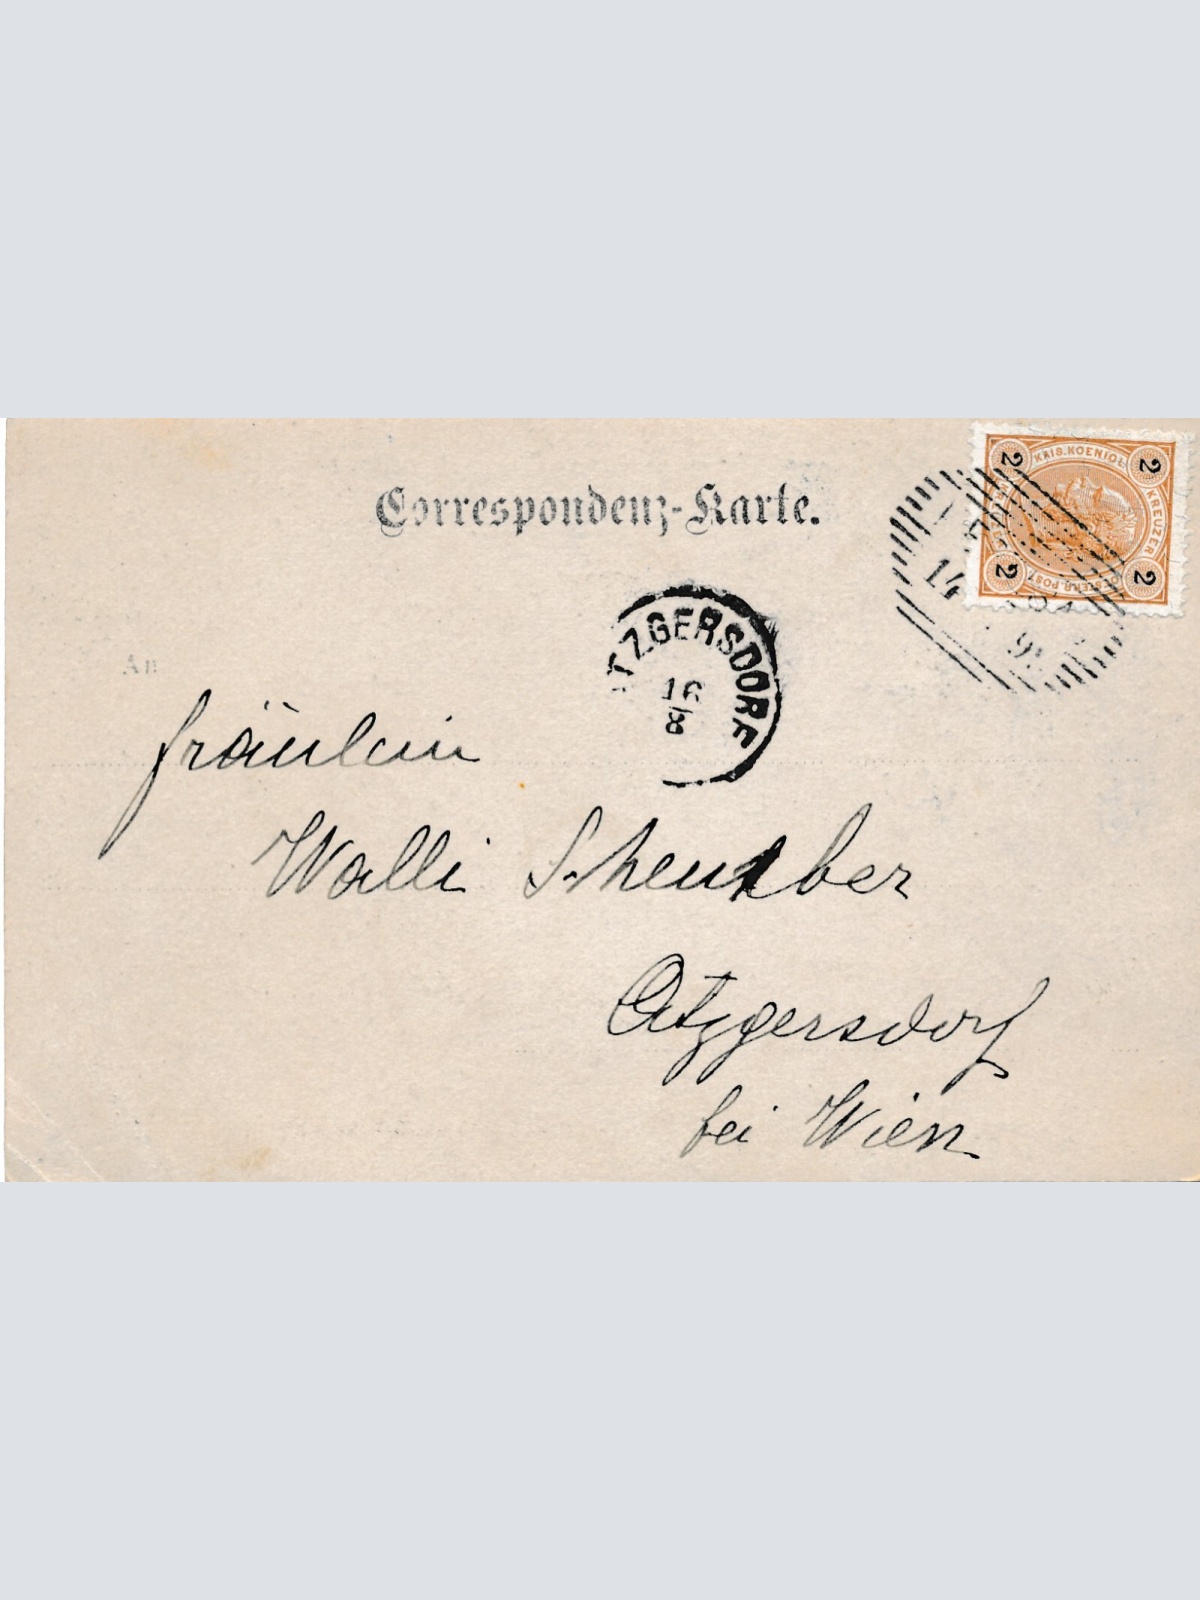 Correspondenz-Karte.
2 KAIS. KOENIGL. 2
KREUZER
2 OESTERR. POST 2
14
9
TZGERSDORF
16
8
An
Fräulein
Walli
Atzgersdorf
bei Wien